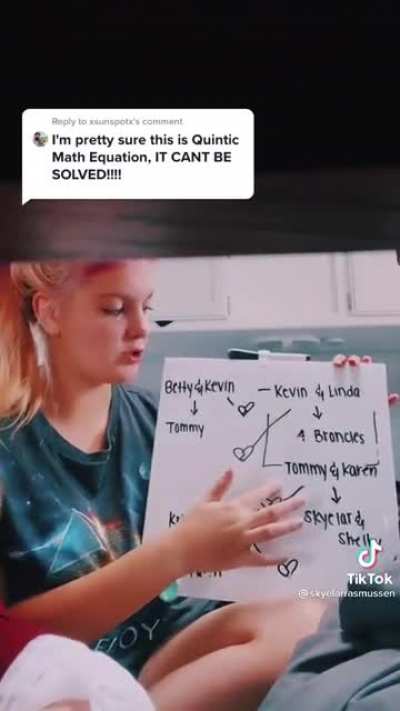 Reply to xsunspotx's comment
I'm pretty sure this is Quintic
Math Equation, IT CANT BE
SOLVED!!!!
Betty & Kevin – Kevin & Linda
Tommy
4 Broncles
Tommy & Karen
Skyelar &
Shelly
TikTok
@skyelarrasmussen